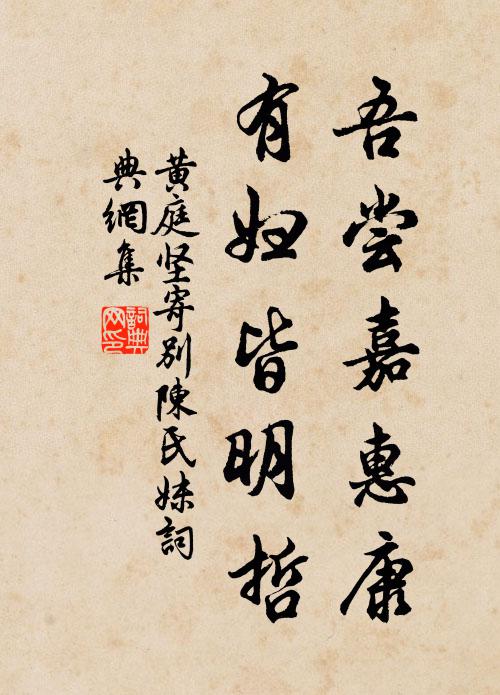 吾尝嘉惠康
有妇皆明哲
黄庭坚寄别陳氏妹詞
典網集
詞典網印